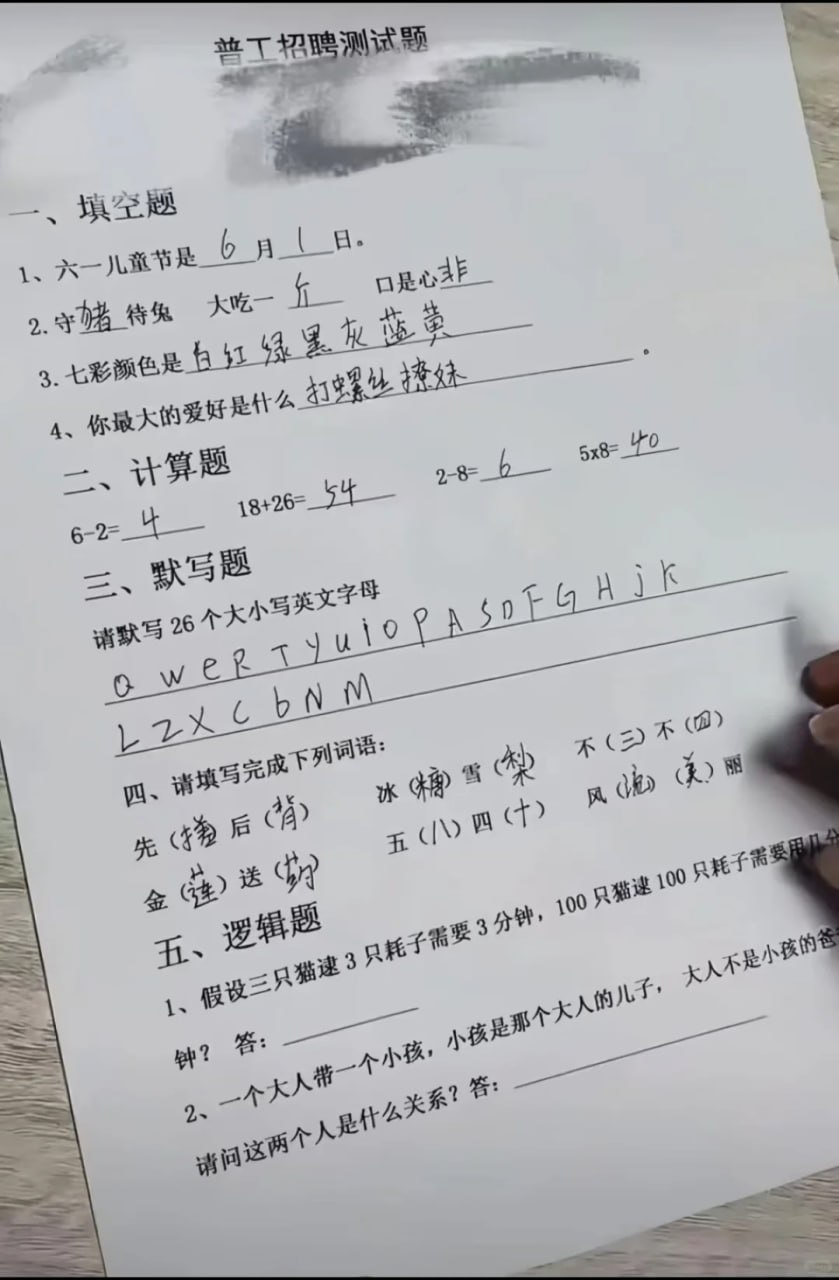 普工招聘测试题
一、填空题
1、六一儿童节是 6 月 1 日。
2.守猪待兔 大吃一斤 口是心非
3.七彩颜色是白红绿黑灰蓝黄
4、你最大的爱好是什么打螺丝撩妹。
二、计算题
6-2=4 18+26=54 2-8=6 5x8=40
三、默写题
请默写26个大小写英文字母
Q W e R T y u i o P A S D F G H j k
L Z X C b N M
四、请填写完成下列词语：
先（）后（背） 冰（糖）雪（梨） 不（三）不（四）
金（莲）送（药） 五（八）四（十） 风（流）（美）丽
五、逻辑题
1、假设三只猫逮3只耗子需要3分钟，100只猫逮100只耗子需要用几分
钟？ 答：
2、一个大人带一个小孩，小孩是那个大人的儿子， 大人不是小孩的爸
请问这两个人是什么关系？答：